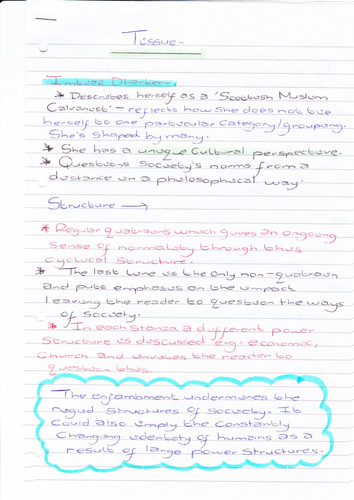 Tissue -
Imtiaz Dharker -
* Describes herself as a 'Scottish Muslim
Calvanist' - reflects how she does not tie
herself to one particular category/grouping.
She's shaped by many.
* She has a unique cultural perspective.
* Questions society's norms from a
distance in a philosophical way.
Structure →
* Regular quatrains which gives an ongoing
sense of normality through this
cyclical structure.
* The last line is the only non-quatrain
and puts emphasis on the impact
leaving the reader to question the ways
of society.
* In each stanza a different power
structure is discussed e.g. economic,
Church and invites the reader to
question this.
The enjambment undermines the
rigid structures of society. It
could also imply the constantly
changing identity of humans as a
result of large power structures.